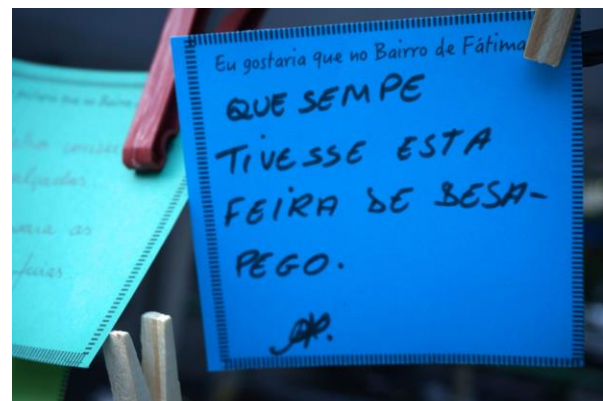 Eu gostaria que no Bairro de Fátima
QUE SEMPE
TIVESSE ESTA
FEIRA DE DESA-
PEGO.
as
feiras.